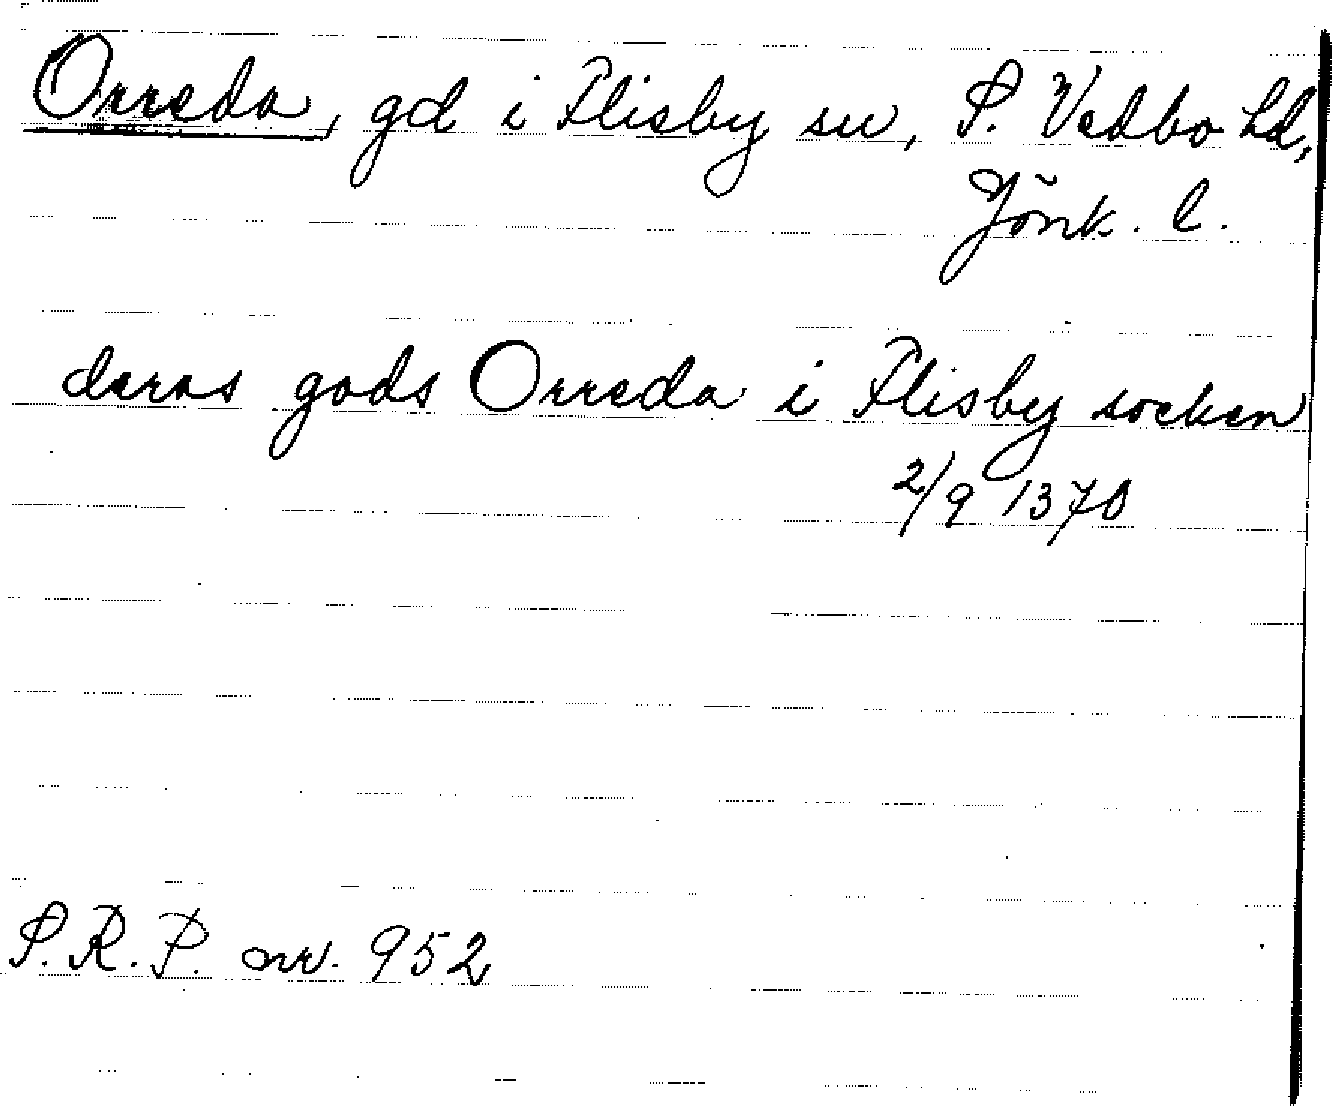 Orreda, gd i Flisby sn, S. Vedbo hd,
Jönk. l.
deras gods Orreda i Flisby socken
2/9 1370
S.R.P. nr. 952